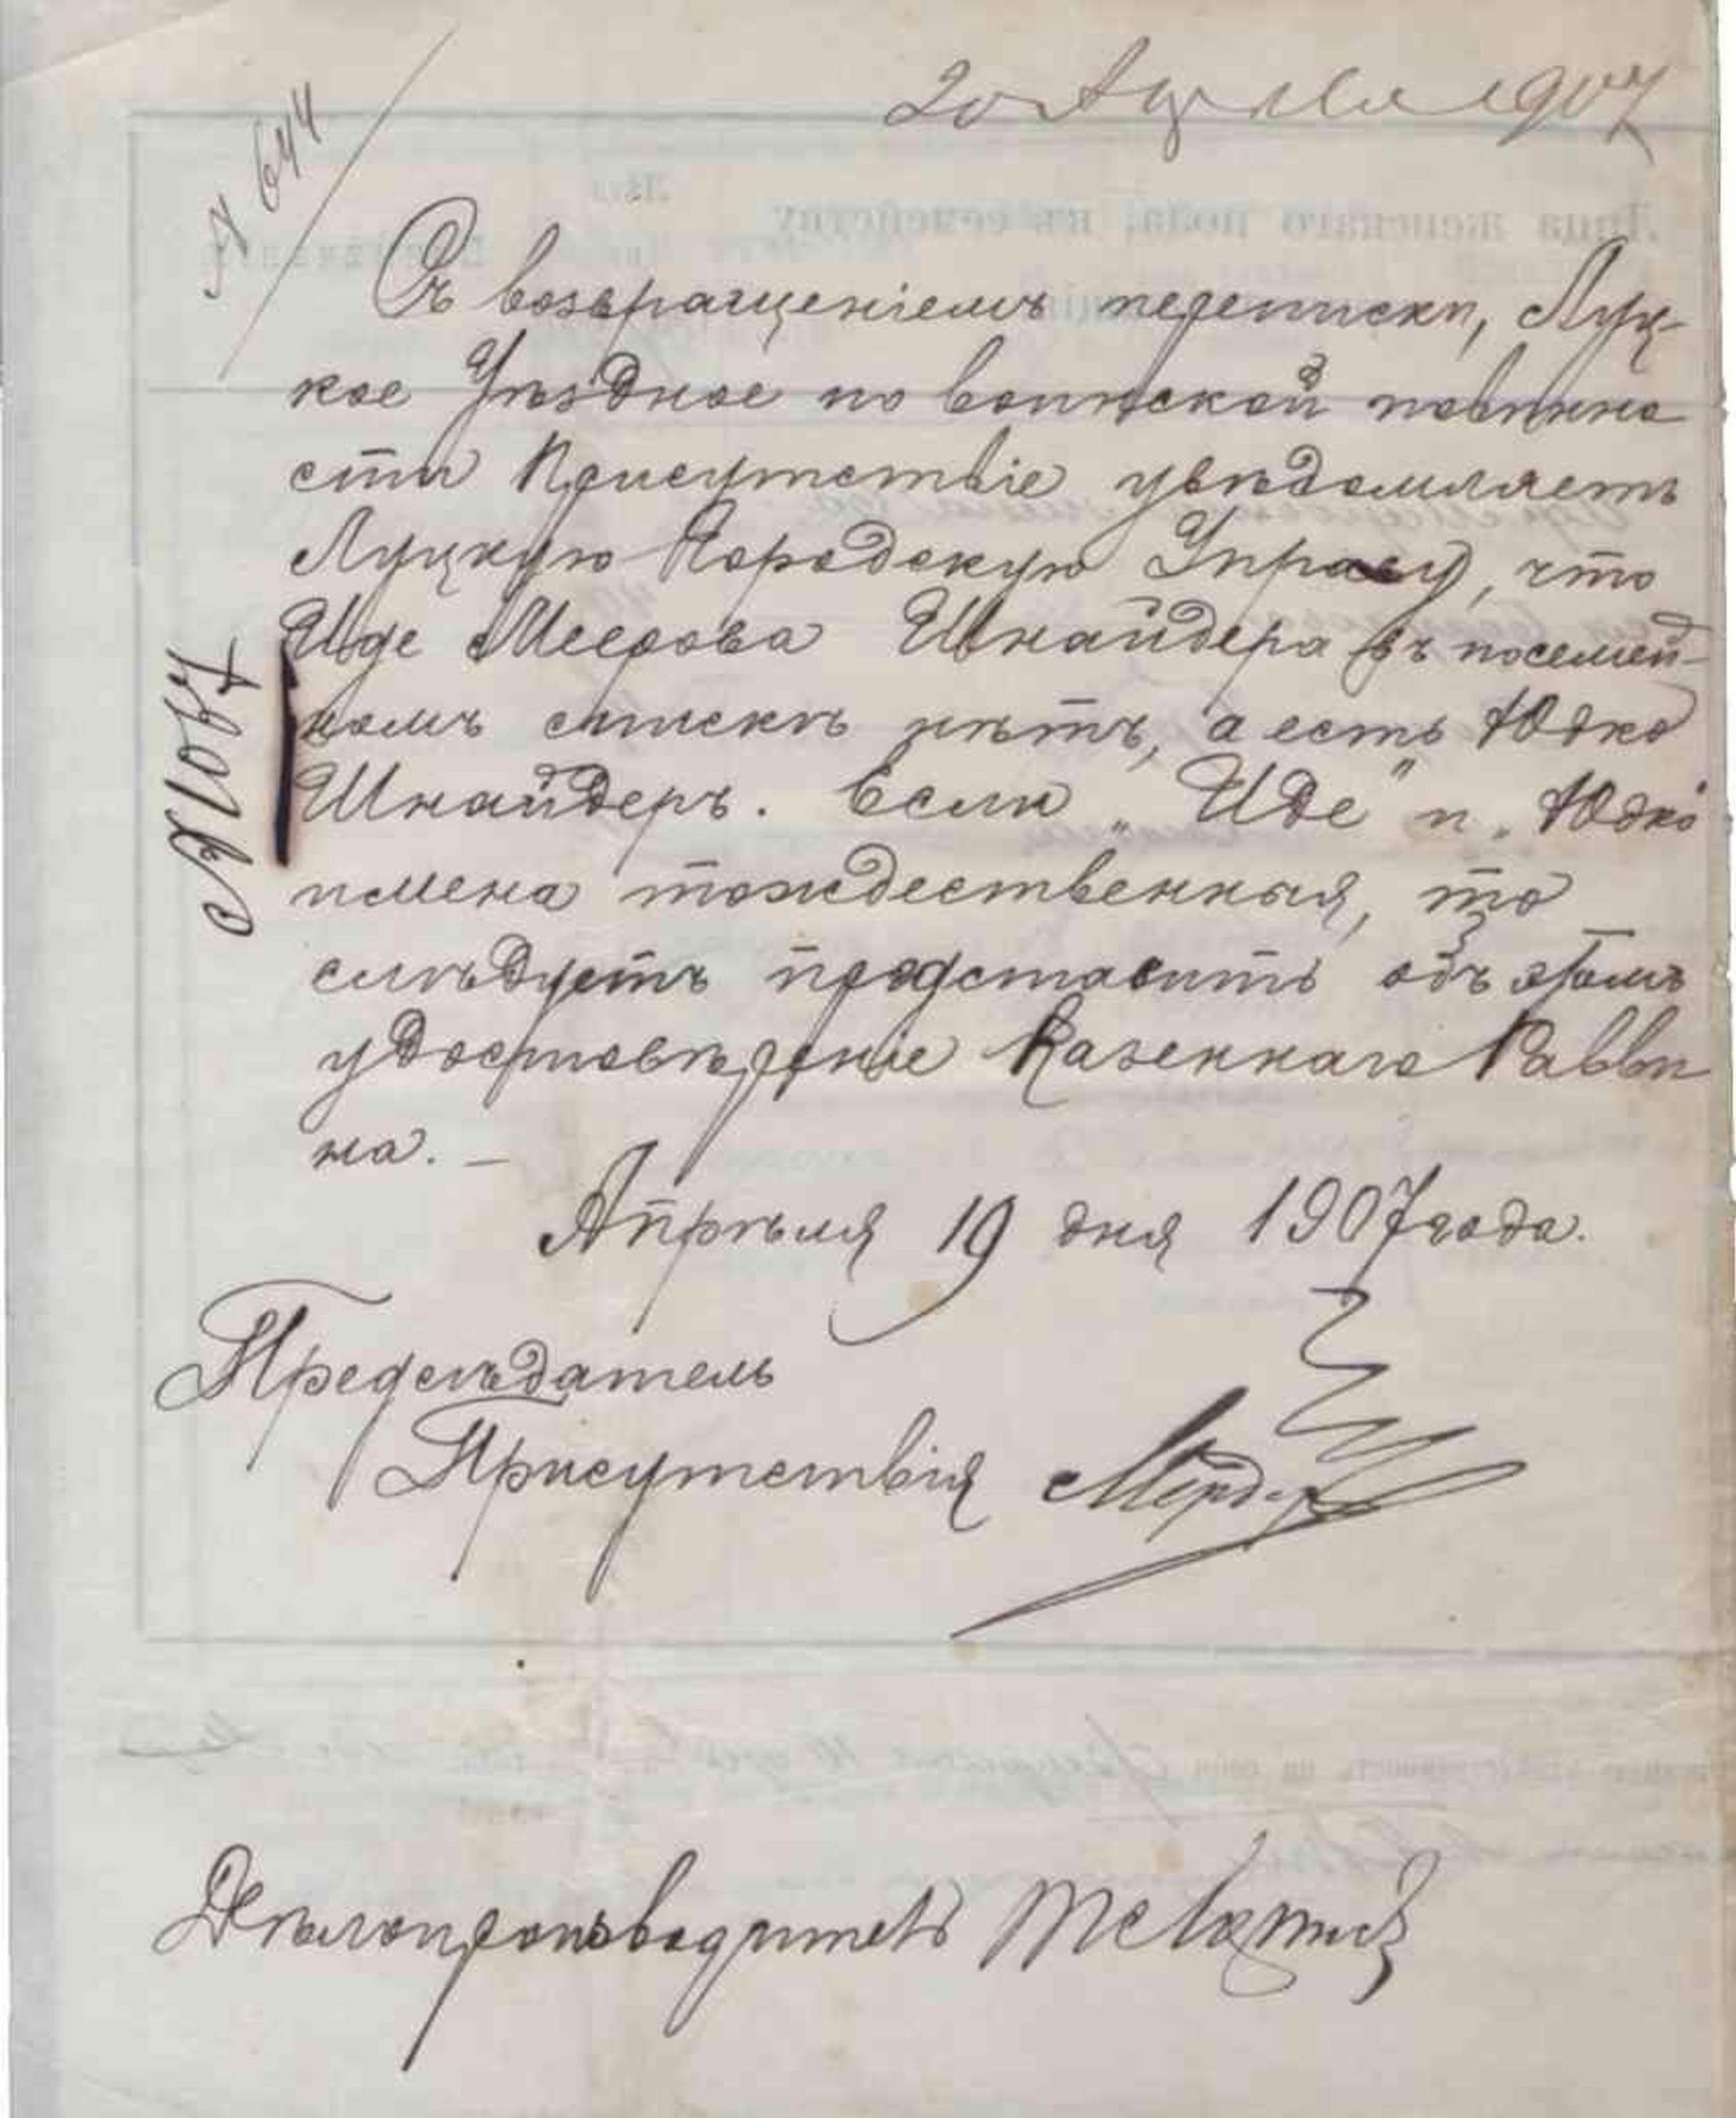 20 Апреля 1907
№ 644
Съ возвращеніемъ переписки, Луц-
кое Уѣздное по воинской повинно
сти Присутствіе увѣдомляетъ
Луцкую Городскую Управу, что
Иде Меерова Шнайдера въ посемей-
номъ спискѣ нѣтъ, а есть Юдко
Шнайдеръ. Если „Иде" и „Юдко"
имена тождественныя, то
слѣдуетъ представить объ этомъ
удостовѣреніе Казеннаго Равви
на. —
Апрѣля 19 дня 1907 года.
Предсѣдатель
Присутствія
Дѣлопроизводитель